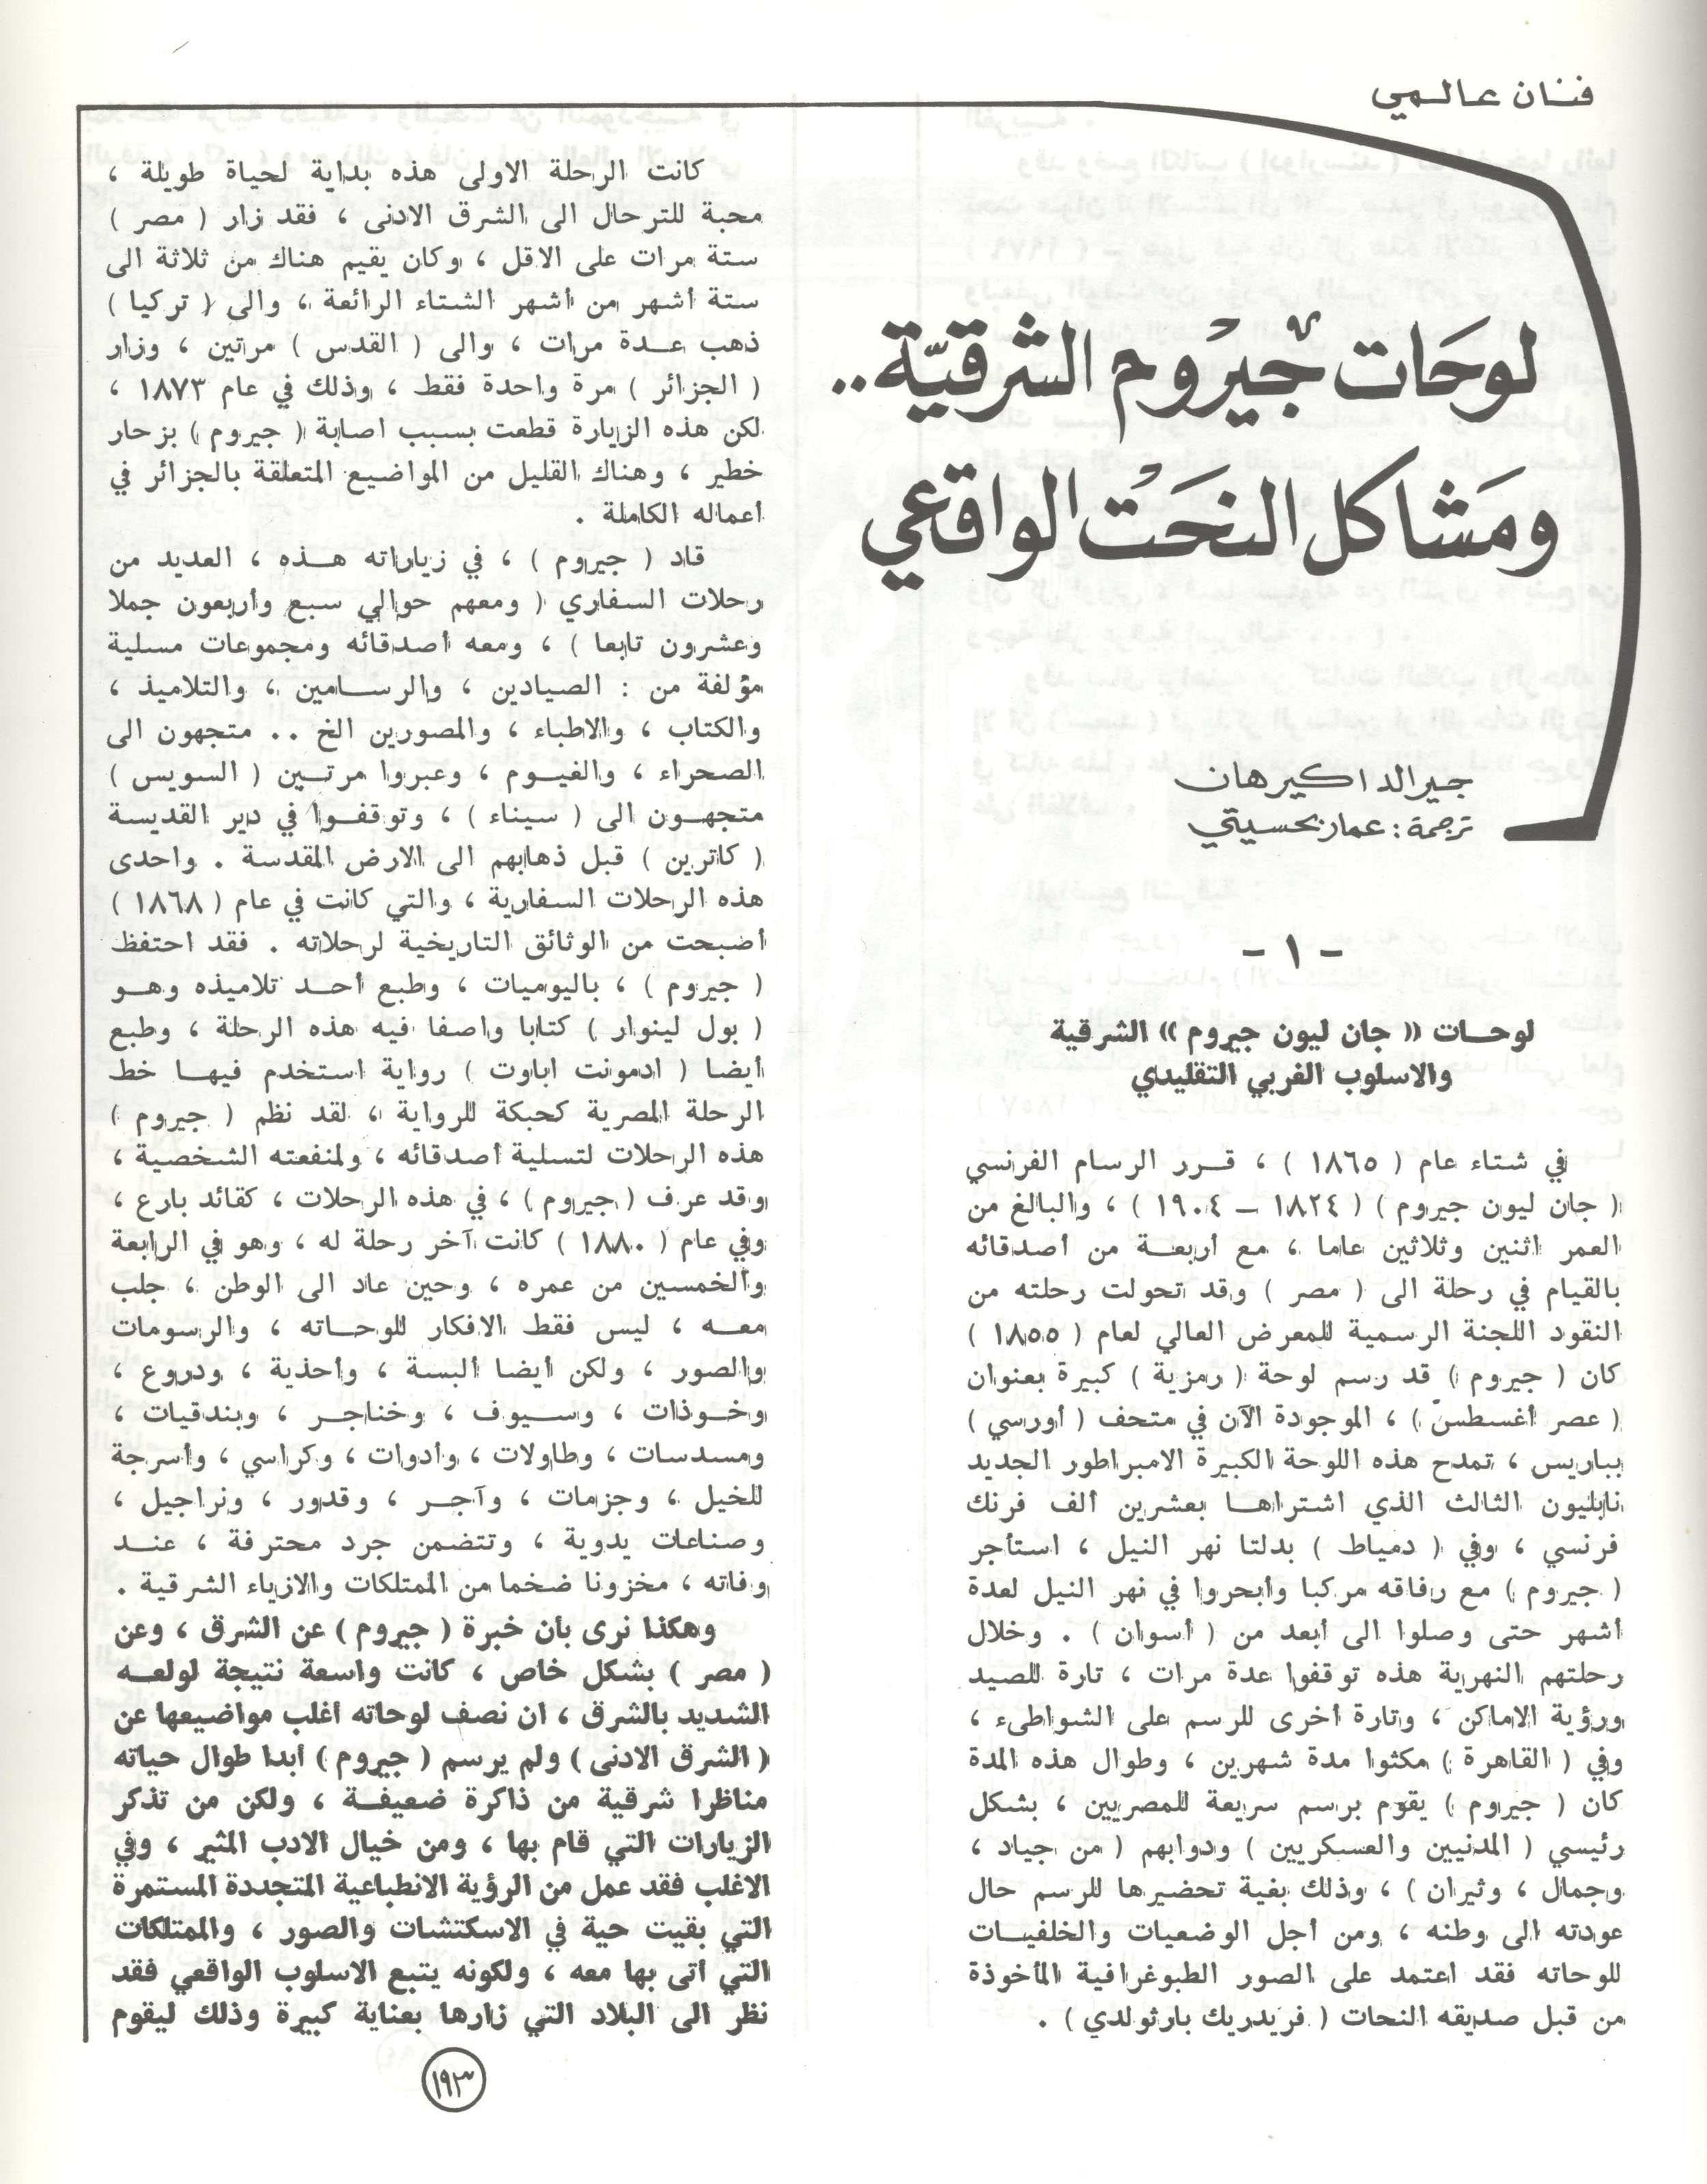 فنان عالمي
لوحَات جيرْوم الشرقيّة..
ومَشاكل النحَتْ الواقعي
جيرالد اكيرهان
ترجمة : عمار حسيتي
- ١ -
لوحات « جان ليون جيروم » الشرقية
والاسلوب الغربي التقليدي
في شتاء عام ( ١٨٦٥ ) ، قرر الرسام الفرنسي
( جان ليون جيروم ) ( ١٨٢٤ – ١٩٠٤ ) ، والبالغ من
العمر اثنين وثلاثين عاما ، مع أربعة من أصدقائه
بالقيام في رحلة الى ( مصر ) وقد تحولت رحلته من
النقود اللجنة الرسمية للمعرض العالي لعام ( ١٨٥٥ )
كان ( جيروم ) قد رسم لوحة ( رمزية ) كبيرة بعنوان
( عصر أغسطسّ ) ، الموجودة الآن في متحف ( أورسي )
بباريس ، تمدح هذه اللوحة الكبيرة الامبراطور الجديد
نابليون الثالث الذي اشتراها بعشرين ألف فرنك
فرنسي ، وفي ( دمياط ) بدلتا نهر النيل ، استأجر
( جيروم ) مع رفاقه مركبا وأبحروا في نهر النيل لعدة
أشهر حتى وصلوا الى أبعد من ( أسوان ) . وخلال
رحلتهم النهرية هذه توقفوا عدة مرات ، تارة للصيد
ورؤية الاماكن ، وتارة أخرى للرسم على الشواطىء ،
وفي ( القاهرة ) مكثوا مدة شهرين ، وطوال هذه المدة
كان ( جيروم ) يقوم برسم سريعة للمصريين ، بشكل
رئيسي ( المدنيين والعسكريين ) ودوابهم ( من جياد ،
وجمال ، وثيران ) ، وذلك بغية تحضيرها للرسم حال
عودته الى وطنه ، ومن أجل الوضعيات والخلفيات
للوحاته فقد اعتمد على الصور الطبوغرافية المأخوذة
من قبل صديقه النحات ( فريدريك بارثولدي ) .
كانت الرحلة الاولى هذه بداية لحياة طويلة ،
محبة للترحال الى الشرق الادنى ، فقد زار ( مصر )
ستة مرات على الاقل ، وكان يقيم هناك من ثلاثة الى
ستة أشهر من أشهر الشتاء الرائعة ، والى ( تركيا )
ذهب عدة مرات ، والى ( القدس ) مرتين ، وزار
( الجزائر ) مرة واحدة فقط ، وذلك في عام ١٨٧٣ ،
لكن هذه الزيارة قطعت بسبب اصابة ( جيروم ) بزحار
خطير ، وهناك القليل من المواضيع المتعلقة بالجزائر في
أعماله الكاملة .
قاد ( جيروم ) ، في زياراته هذه ، العديد من
رحلات السفاري ( ومعهم حوالي سبع وأربعون جملا
وعشرون تابعا ) ، ومعه أصدقائه ومجموعات مسلية
مؤلفة من : الصيادين ، والرسامين ، والتلاميذ ،
والكتاب ، والاطباء ، والمصورين الخ .. متجهون الى
الصحراء ، والفيوم ، وعبروا مرتين ( السويس )
متجهون الى ( سيناء ) ، وتوقفوا في دير القديسة
( كاترين ) قبل ذهابهم الى الارض المقدسة . واحدى
هذه الرحلات السفارية ، والتي كانت في عام ( ١٨٦٨ )
أضبحت من الوثائق التاريخية لرحلاته . فقد احتفظ
( جيروم ) ، باليوميات ، وطبع أحد تلاميذه وهو
( بول لينوار ) كتابا واصفا فيه هذه الرحلة ، وطبع
أيضا ( ادمونت اباوت ) رواية استخدم فيها خط
الرحلة المصرية كحبكة للرواية ، لقد نظم ( جيروم )
هذه الرحلات لتسلية أصدقائه ، ولمنفعته الشخصية ،
وقد عرف ( جيروم ) ، في هذه الرحلات ، كقائد بارع ،
وفي عام ( ١٨٨٠ ) كانت آخر رحلة له ، وهو في الرابعة
والخمسين من عمره ، وحين عاد الى الوطن ، جلب
معه ، ليس فقط الافكار للوحاته ، والرسومات
والصور ، ولكن أيضا ألبسة ، وأحذية ، ودروع ،
وخوذات ، وسيوف ، وخناجر ، وبندقيات ،
ومسدسات ، وطاولات ، وأدوات ، وكراسي ، وأسرجة
للخيل ، وجزمات ، وآجر ، وقدور ، ونراجيل ،
وصناعات يدوية ، وتتضمن جرد محترفة ، عند
وفاته ، مخزونا ضخما من الممتلكات والازياء الشرقية .
وهكذا نرى بأن خبرة ( جيروم ) عن الشرق ، وعن
( مصر ) بشكل خاص ، كانت واسعة نتيجة لولعه
الشديد بالشرق ، ان نصف لوحاته أغلب مواضيعها عن
( الشرق الادنى ) ولم يرسم ( جيروم ) أبدا طوال حياته
مناظرا شرقية من ذاكرة ضعيفة ، ولكن من تذكر
الزيارات التي قام بها ، ومن خيال الادب المثير ، وفي
الاغلب فقد عمل من الرؤية الانطباعية المتجددة المستمرة
التي بقيت حية في الاسكتشات والصور ، والممتلكات
التي أتى بها معه ، ولكونه يتبع الاسلوب الواقعي فقد
نظر الى البلاد التي زارها بعناية كبيرة وذلك ليقوم
١٩٣